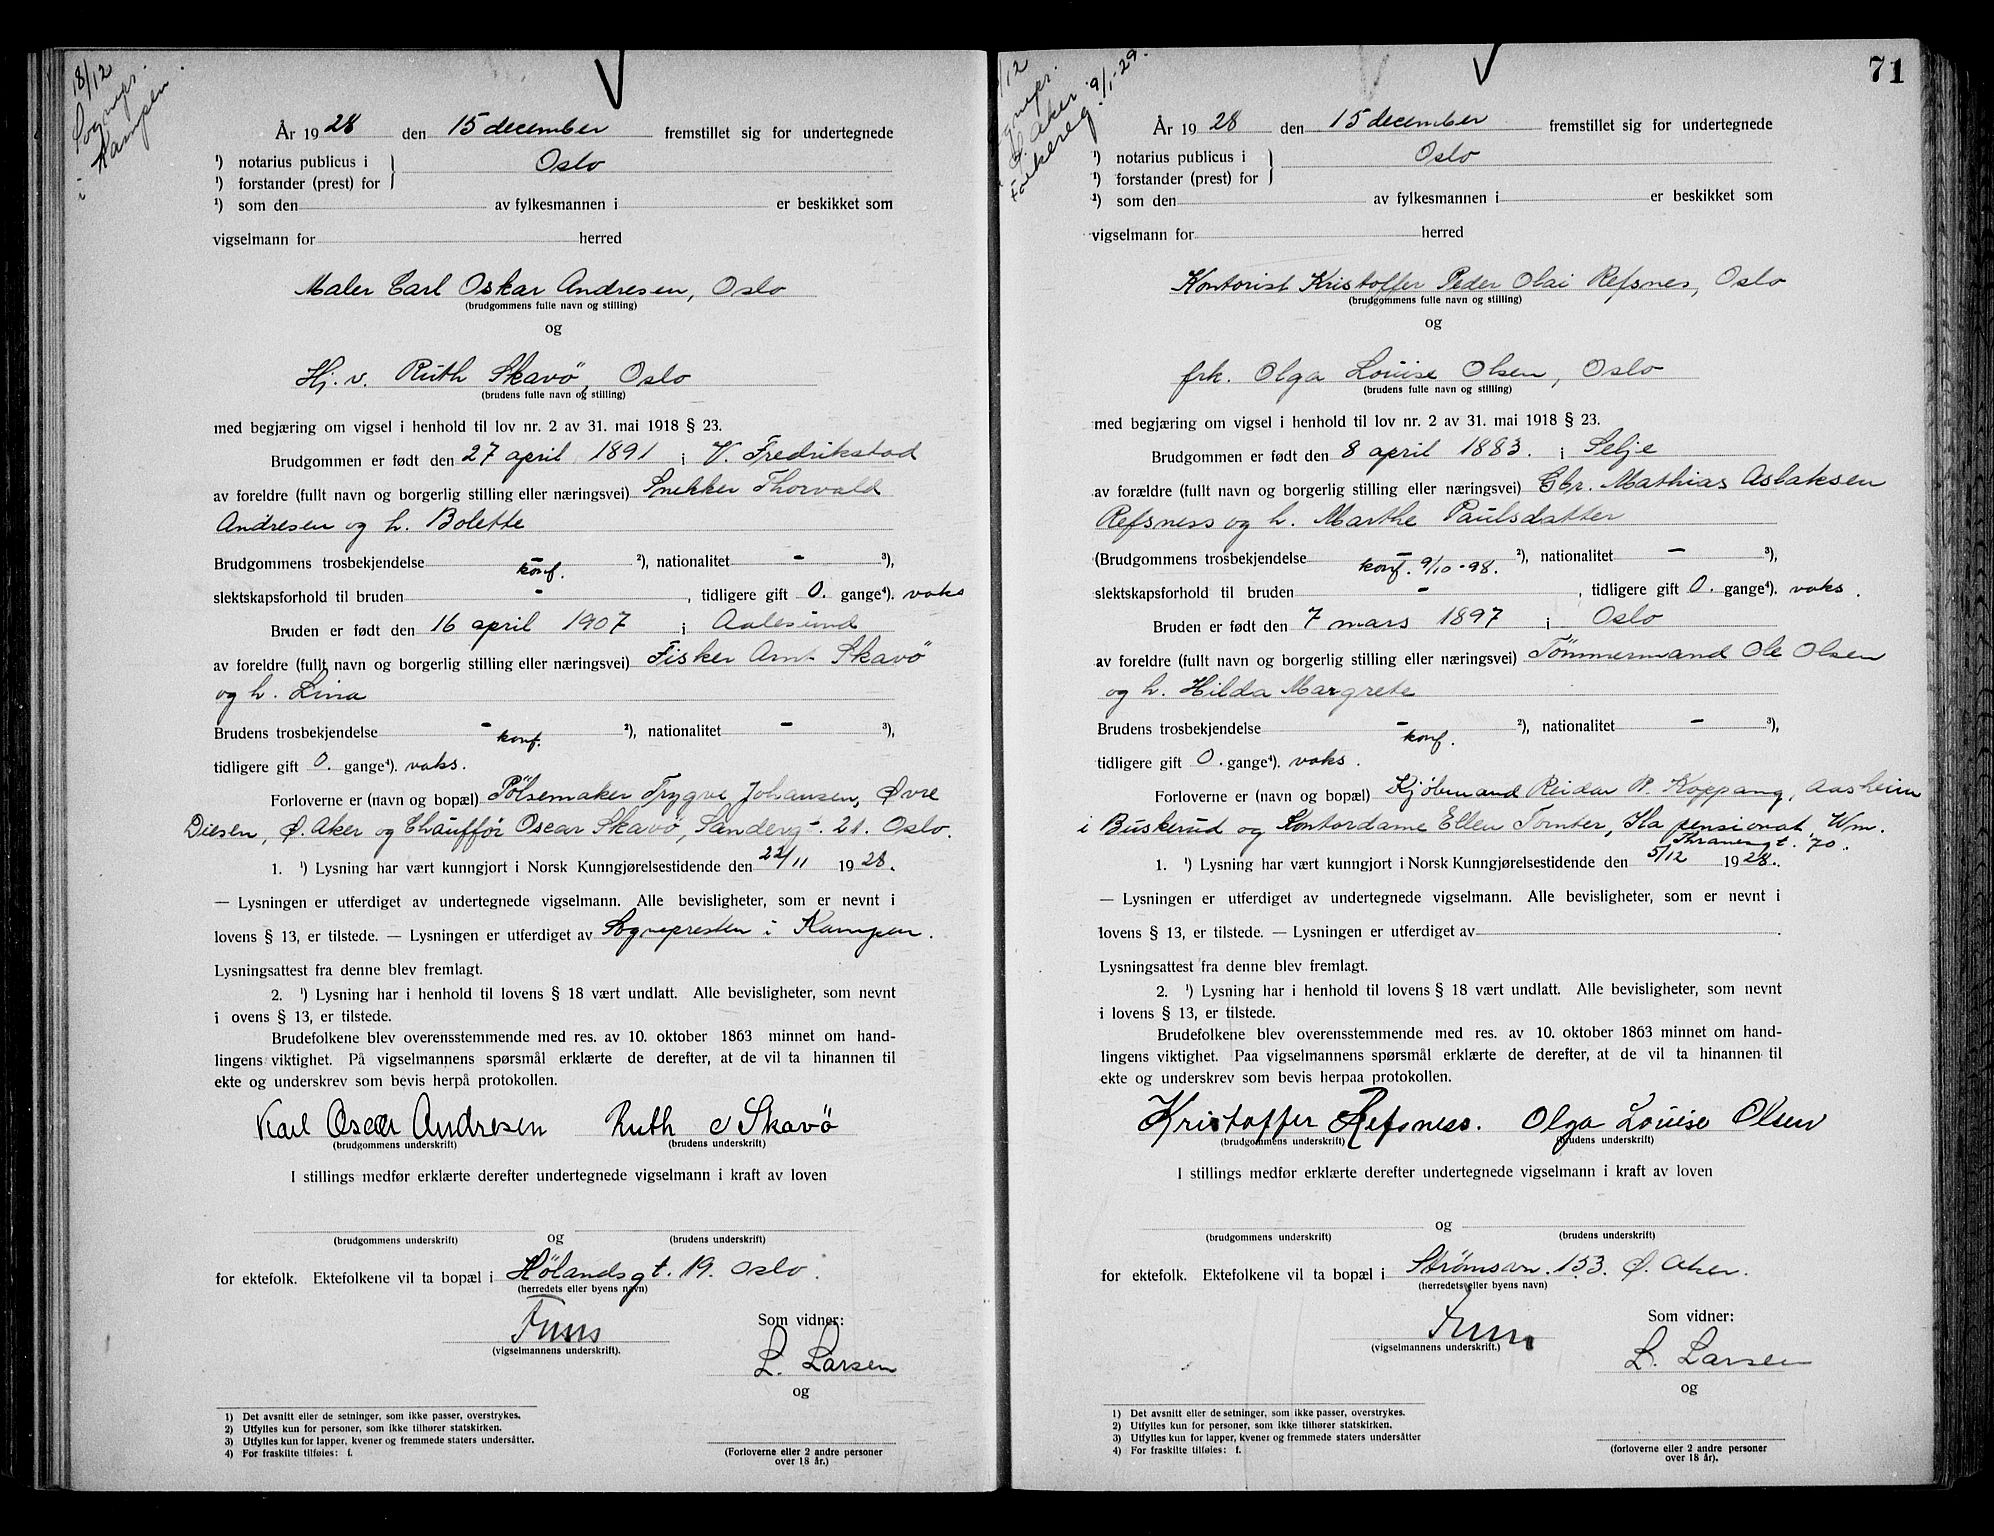 18/12
Sognepr.
i Kampen
År 1928 den 15 december fremstillet sig for undertegnede
¹) notarius publicus i } Oslo
¹) forstander (prest) for
¹) som den av fylkesmannen i er beskikket som
vigselmann for herred
Maler Carl Oskar Andresen, Oslo
(brudgommens fulle navn og stilling)
og
Hj. v. Ruth Skavö, Oslo
(brudens fulle navn og stilling)
med begjæring om vigsel i henhold til lov nr. 2 av 31. mai 1918 § 23.
Brudgommen er født den 27 april 1891 i V. Fredrikstad
av foreldre (fullt navn og borgerlig stilling eller næringsvei) Snekker Thorvald
Andresen og h. Bolette
Brudgommens trosbekjendelse - ²), nationalitet - ³),
konf.
slektskapsforhold til bruden - , tidligere gift 0. gange⁴). vaks
Bruden er født den 16 april 1907 i Aalesund
av foreldre (fullt navn og borgerlig stilling eller næringsvei) Fisker Arnt Skavö
og h. Lina
Brudens trosbekjendelse - ²), nationalitet - ³),
konf.
tidligere gift 0. gange⁴). vaks.
Forloverne er (navn og bopæl) Pölsemaker Trygve Johansen, Øvre
Diesen, Ø. Aker og Chauffør Oscar Skavö, Sanderg. 21. Oslo.
1. ¹) Lysning har vært kunngjort i Norsk Kunngjørelsestidende den 22/11 1928.
— Lysningen er utferdiget av undertegnede vigselmann. Alle bevisligheter, som er nevnt i
lovens § 13, er tilstede. — Lysningen er utferdiget av Sognepresten i Kampen.
Lysningsattest fra denne blev fremlagt.
2. ¹) Lysning har i henhold til lovens § 18 vært undlatt. Alle bevisligheter, som nevnt
i ovens § 13, er tilstede.
Brudefolkene blev overensstemmende med res. av 10. oktober 1863 minnet om hand-
lingens viktighet. På vigselmannens spørsmål erklærte de derefter, at de vil ta hinannen til
ekte og underskrev som bevis herpå protokollen.
Karl Oscar Andresen Ruth Skavö
(brudgommens underskrift) (brudens underskrift)
I stillings medfør erklærte derefter undertegnede vigselmann i kraft av loven
og
(brudgommens underskrift) (brudens underskrift)
for ektefolk. Ektefolkene vil ta bopæl i Hölandsgt. 19. Oslo.
(herredets eller byens navn)
Som vidner:
(vigselmannens underskrift).
L. Larsen
og
1) Det avsnitt eller de setninger, som ikke passer, overstrykes.
2) Utfylles kun for personer, som ikke tilhører statskirken.
3) Utfylles kun for lapper, kvener og fremmede staters undersåtter.
4) For fraskilte tilføies: f.
(Forloverne eller 2 andre personer
over 18 år.)
71
/12
Ø. Aker. 9/1-29.
Folkereg.
År 1928 den 15 december fremstillet sig for undertegnede
¹) notarius publicus i } Oslo
¹) forstander (prest) for
¹) som den av fylkesmannen i er beskikket som
vigselmann for herred
Kontorist Kristoffer Peder Olai Refsnes, Oslo
(brudgommens fulle navn og stilling)
og
frk. Olga Louise Olsen, Oslo
(brudens fulle navn og stilling)
med begjæring om vigsel i henhold til lov nr. 2 av 31. mai 1918 § 23.
Brudgommen er født den 8 april 1883. i Selje
av forældre (fullt navn og borgerlig stilling eller næringsvei) Gbr. Mathias Aslaksen
Refsness og h. Marthe Paulsdatter
(Brudgommens trosbekjendelse - ²), nationalitet - ³),
konf. 9/10-98.
slektskapsforhold til bruden - , tidligere gift 0. gange⁴). vaks.
Bruden er født den 7 mars 1897 i Oslo
av foreldre (fullt navn og borgerlig stilling eller næringsvei) Tömmermand Ole Olsen
og h. Hilda Margrete
Brudens trosbekjendelse - ²), nationalitet - ³),
konf.
tidligere gift 0. gange⁴). vaks.
Forloverne er (navn og bopæl) Kjöbmand Reidar R. Koppang, Aasheim
i Buskerud og Kontordame Ellen Tomter, Ila pensionat, Wm.
Thranesgt. 70.
1. ¹) Lysning har vært kunngjort i Norsk Kunngjørelsestidende den 5/12 1928.
— Lysningen er utferdiget av undertegnede vigselmann. Alle bevisligheter, som er nevnt i
lovens § 13, er tilstede. — Lysningen er utferdiget av
Lysningsattest fra denne blev fremlagt.
2. ¹) Lysning har i henhold til lovens § 18 vært undlatt. Alle bevisligheter, som nevnt
i lovens § 13, er tilstede.
Brudefolkene blev overensstemmende med res. av 10. oktober 1863 minnet om hand-
lingens viktighet. Paa vigselmannens spørsmål erklærte de derefter, at de vil ta hinannen til
ekte og underskrev som bevis herpaa protokollen.
Kristoffer Refsness. Olga Louise Olsen
(brudgommens underskrift) (brudens underskrift)
I stillings medfør erklærte derefter undertegnede vigselmann i kraft av loven
og
(brudgommens underskrift) (brudens underskrift)
for ektefolk. Ektefolkene vil ta bopæl i Strømsvn. 153. Ø. Aker.
(herredets eller byens navn)
Som vidner:
(vigselmannens underskrift.)
L. Larsen
og
1) Det avsnitt eller de setninger, som ikke passer, overstrykes.
2) Utfylles kun for personer, som ikke tilhører statskirken.
3) Utfylles kun for lapper, kvener og fremmede staters undersåtter
4) For fraskilte tilføies: f.
(forloverne eller 2 andre personer
over 18 år).